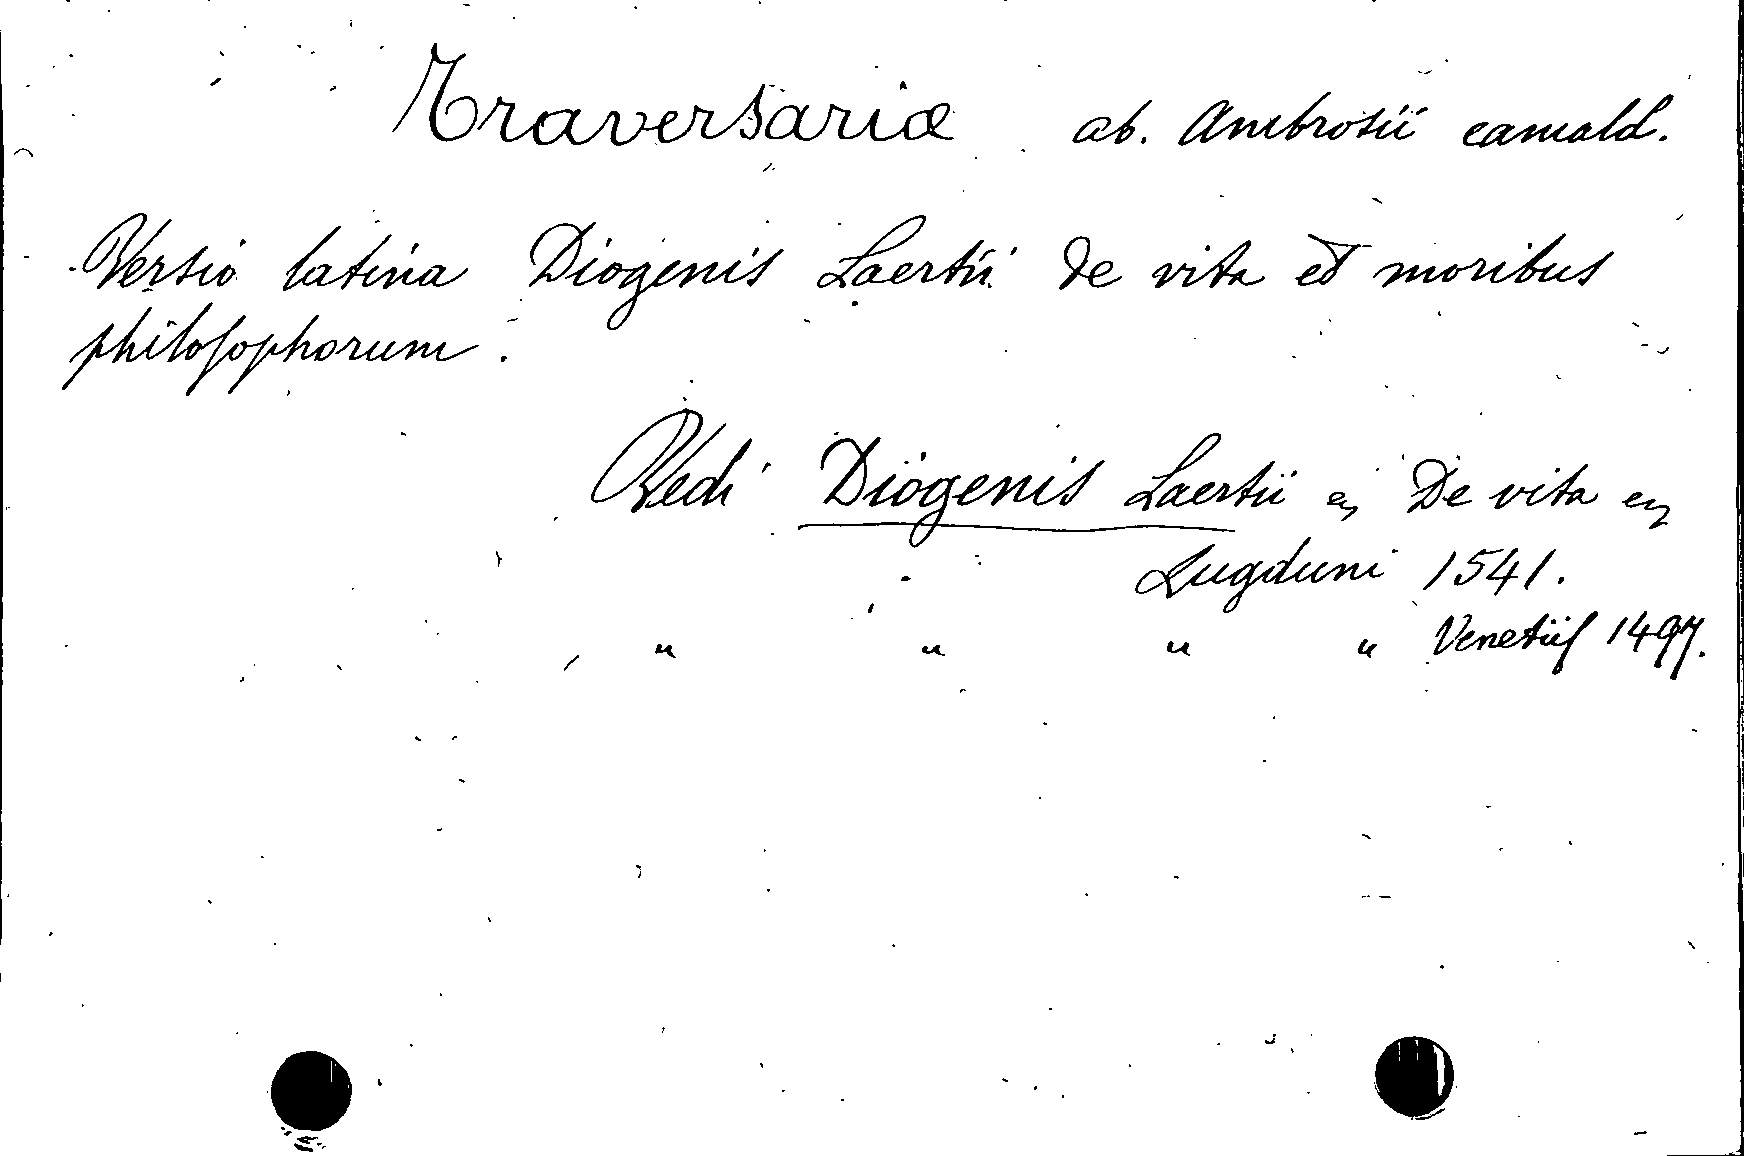 Traversariæ ab. Ambrosii camald.
Versio latina Diogenis Laertii de vita et moribus
philosophorum.
Vedi Diogenis Laertii De vita
Lugduni 1541.
" " " " Venetiis 1497.